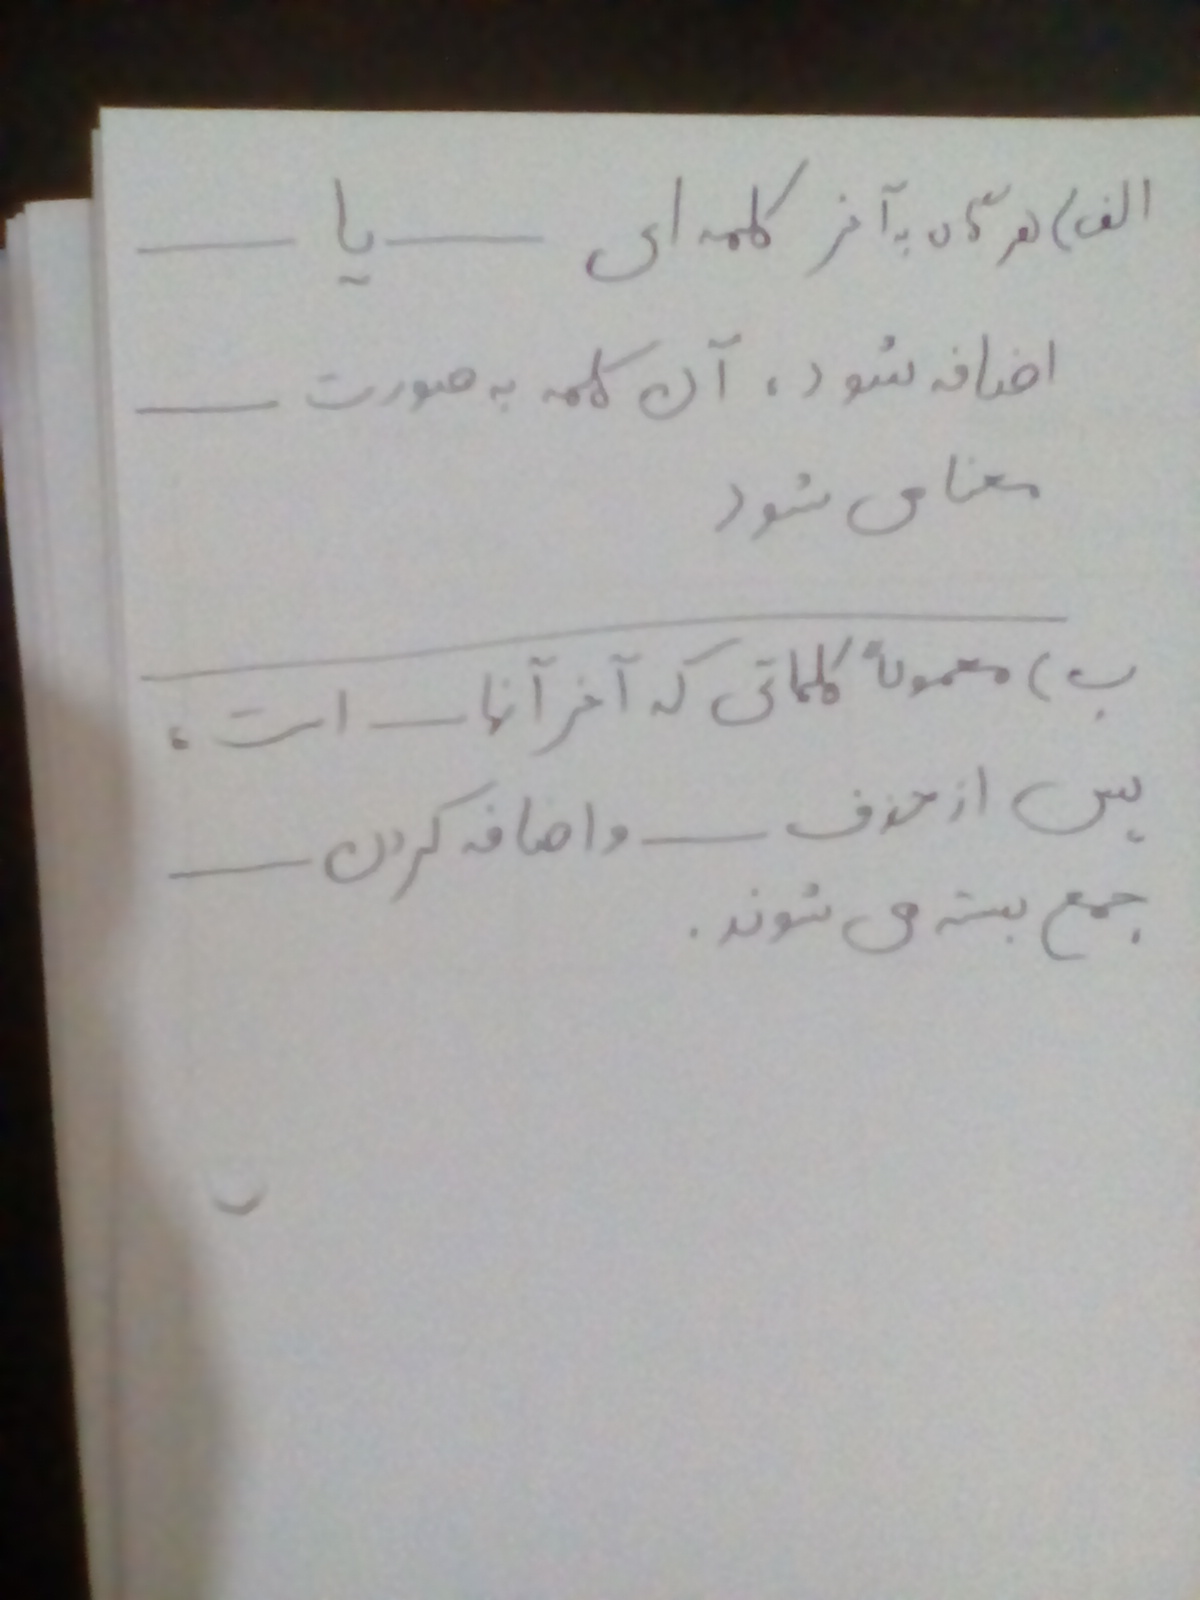 الف) هرگاه به آخر کلمه ای ــــــ یا ــــــ
اضافه شود، آن کلمه به صورت ــــــ
معنا می شود
ب) معمولاً کلماتی که آخر آنها ــــــ است،
پس از حذف ــــــ و اضافه کردن ــــــ
جمع بسته می شوند.